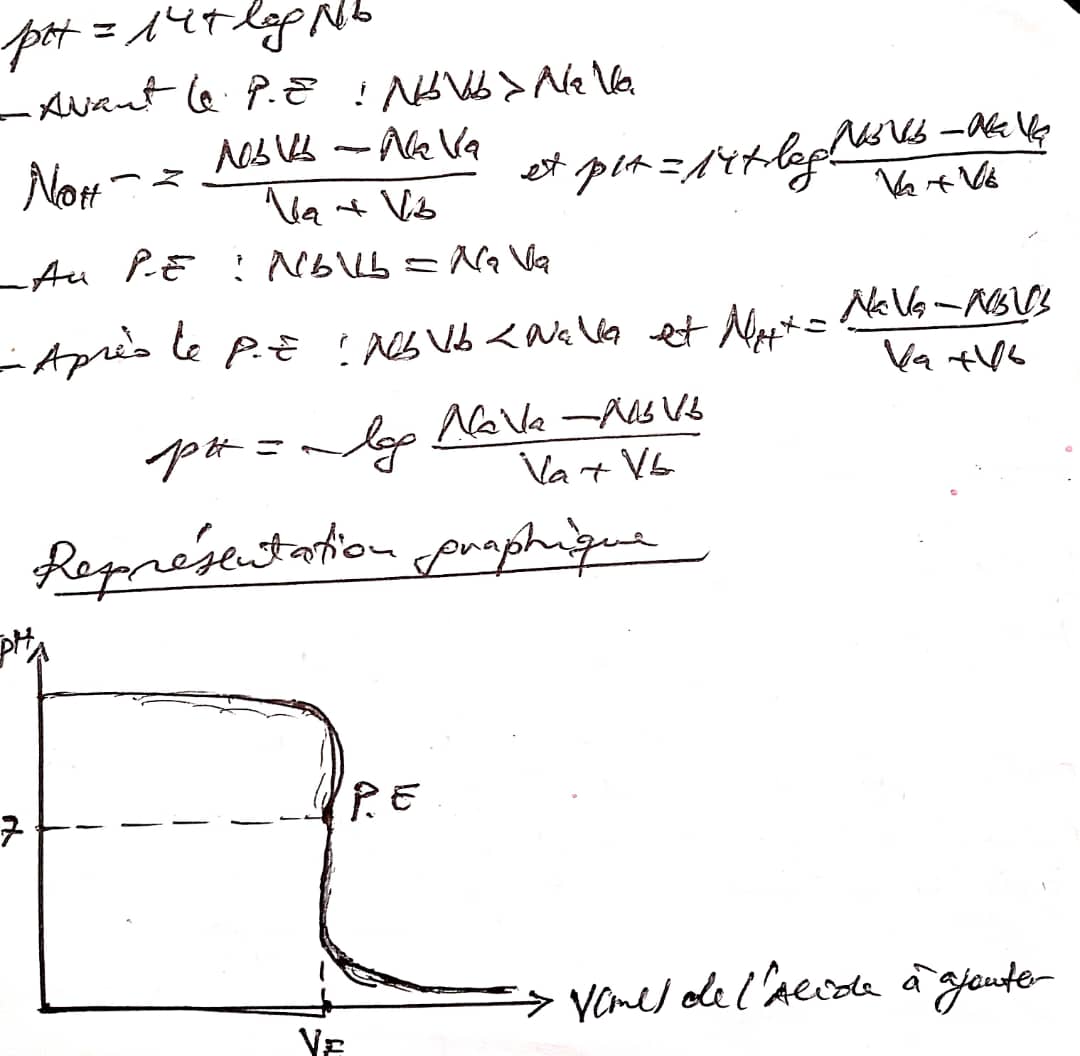 pH = 14 + log Nb
- Avant le P.E : NbVb > NaVa
N_OH⁻ = (NbVb - NaVa)/(Va + Vb) et pH = 14 + log (NbVb - NaVa)/(Va + Vb)
- Au P.E : NbVb = NaVa
- Après le P.E : NbVb < NaVa et N_H⁺ = (NaVa - NbVb)/(Va + Vb)
pH = - log (NaVa - NbVb)/(Va + Vb)
Représentation graphique
pH
P.E
7
V(ml) de l'Acide à ajouter
VE